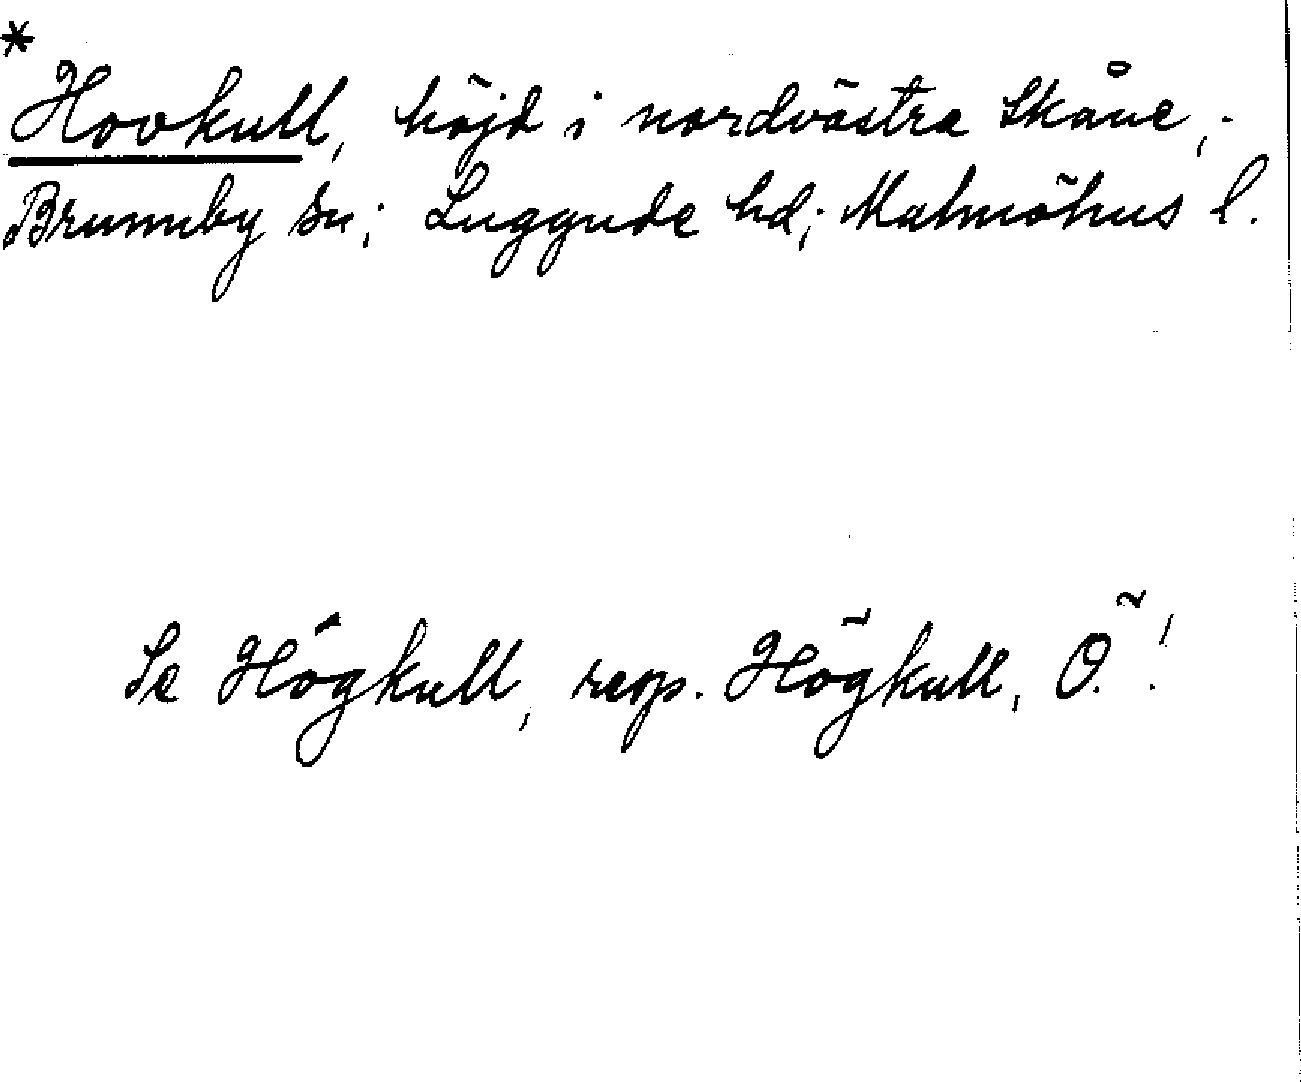 *
Hovkull, höjd i nordvästra Skåne,-
Brunnby sn; Luggude hd; Malmöhus l.
Se Högkull, resp. Högkull, Ö.!